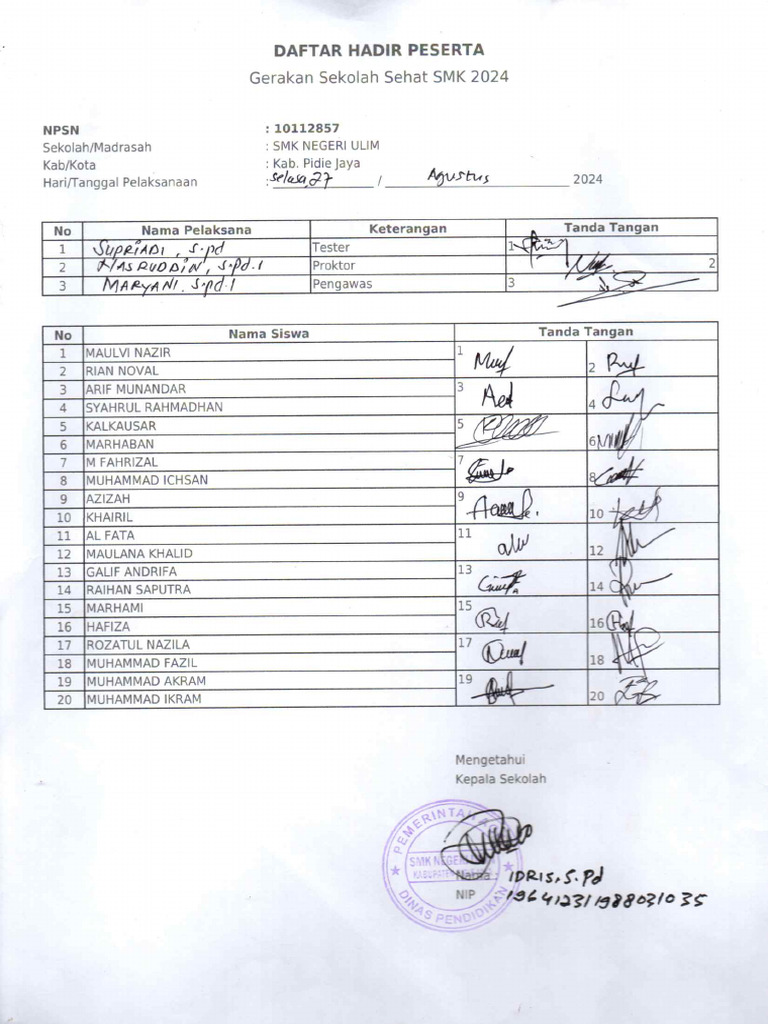 DAFTAR HADIR PESERTA
Gerakan Sekolah Sehat SMK 2024
NPSN : 10112857
Sekolah/Madrasah : SMK NEGERI ULIM
Kab/Kota : Kab. Pidie Jaya
Hari/Tanggal Pelaksanaan : selasa, 27 / Agustus 2024
No Nama Pelaksana Keterangan Tanda Tangan
1 SUPRIADI, S.pd Tester 1
2 HASRUDDIN, S.pd.I Proktor 2
3 MARYANI, S.pd.I Pengawas 3
No Nama Siswa Tanda Tangan
1 MAULVI NAZIR 1
2 RIAN NOVAL 2
3 ARIF MUNANDAR 3
4 SYAHRUL RAHMADHAN 4
5 KALKAUSAR 5
6 MARHABAN 6
7 M FAHRIZAL 7
8 MUHAMMAD ICHSAN 8
9 AZIZAH 9
10 KHAIRIL 10
11 AL FATA 11
12 MAULANA KHALID 12
13 GALIF ANDRIFA 13
14 RAIHAN SAPUTRA 14
15 MARHAMI 15
16 HAFIZA 16
17 ROZATUL NAZILA 17
18 MUHAMMAD FAZIL 18
19 MUHAMMAD AKRAM 19
20 MUHAMMAD IKRAM 20
Mengetahui
Kepala Sekolah
PEMERINTAH
SMK NEGERI
KABUPATEN
DINAS PENDIDIKAN
Nama : IDRIS, S.Pd
NIP 196412311988031035